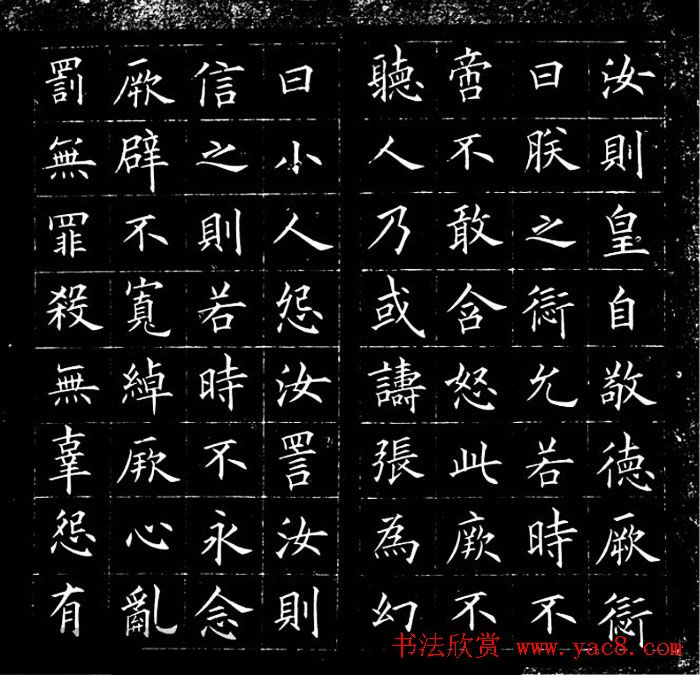 汝則皇自敬德厥愆
曰朕之愆允若時不
啻不敢含怒此厥不
聽人乃或譸張為幻
曰小人怨汝詈汝則
信之則若時不永念
厥辟不寬綽厥心亂
罰無罪殺無辜怨有
书法欣赏 www.yac8.com